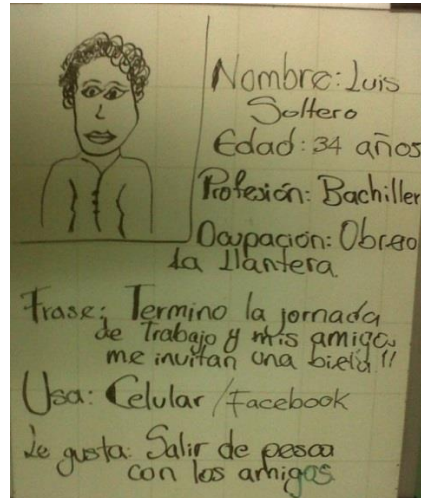 Nombre: Luis
Soltero
Edad: 34 años
Profesión: Bachiller
Ocupación: Obrero
La Llantera
Frase: Termino la jornada
de trabajo y mis amigos
me invitan una biela!!
Usa: Celular / Facebook
Le gusta: Salir de pesca
con los amigos